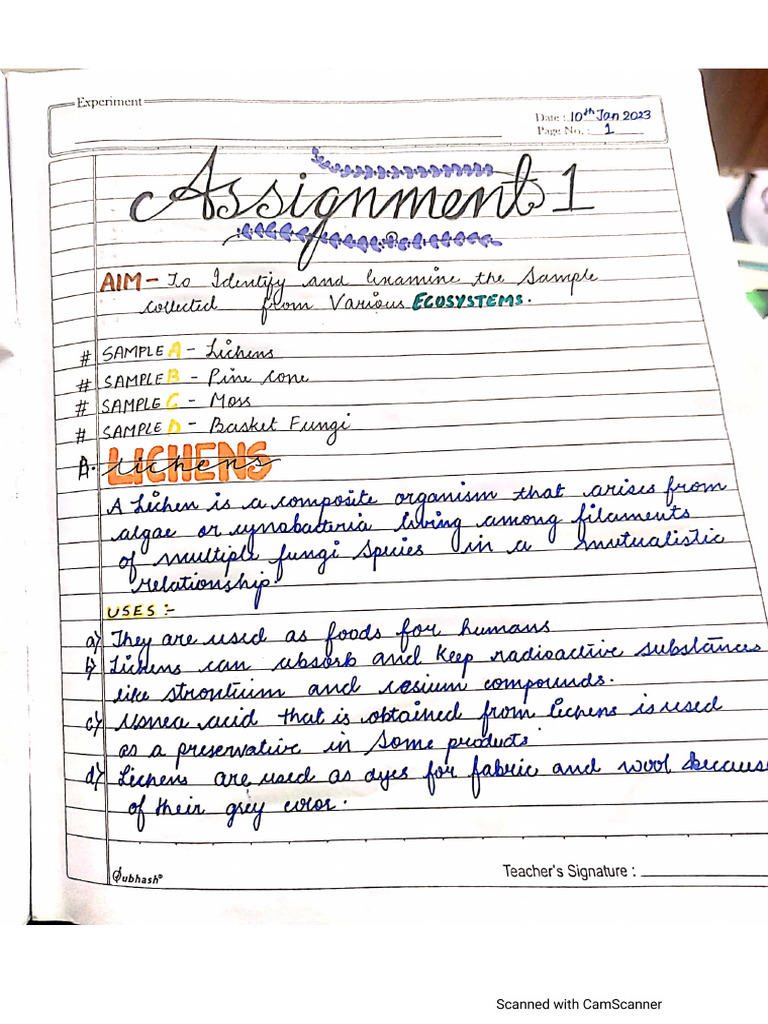 Experiment
Date : 10th Jan 2023
Page No. : 1
Assignment 1
AIM - To Identify and Examine the Sample
collected from Various ECOSYSTEMS.
# SAMPLE A - Lichens
# SAMPLE B - Pine cone
# SAMPLE C - Moss
# SAMPLE D - Basket Fungi
A. LICHENS lichens
A Lichen is a composite organism that arises from
algae or cynobacteria living among filaments
of multiple fungi species in a mutualistic
relationship.
USES :-
a) They are used as foods for humans
b) Lichens can absorb and keep radioactive substances
like strontium and cesium compounds.
c) Usnea acid that is obtained from lichens is used
as a preservative in some products.
d) Lichens are used as dyes for fabric and wool because
of their grey color.
Subhash®
Teacher's Signature :
Scanned with CamScanner